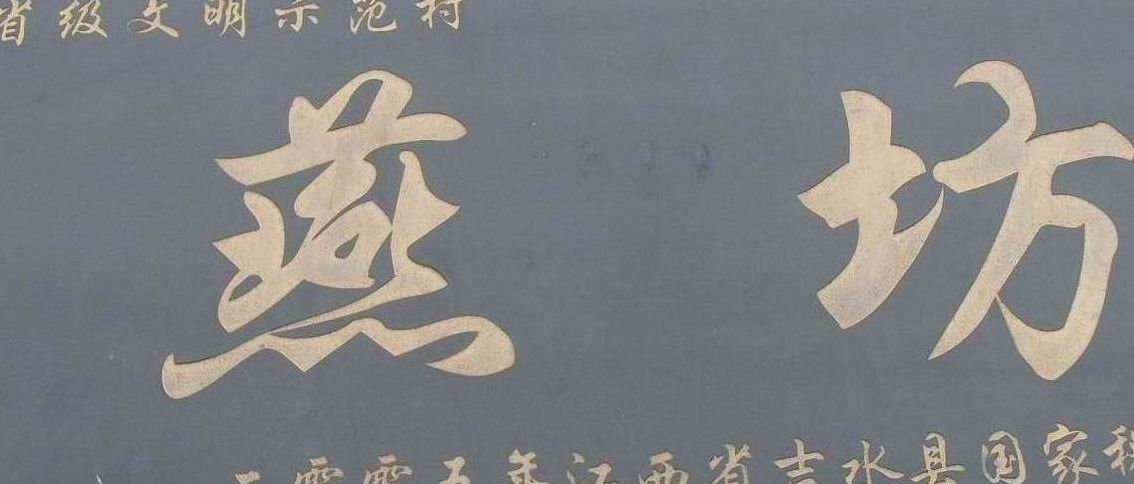 省级文明示范村
燕坊
二零零五年江西省吉水县国家税